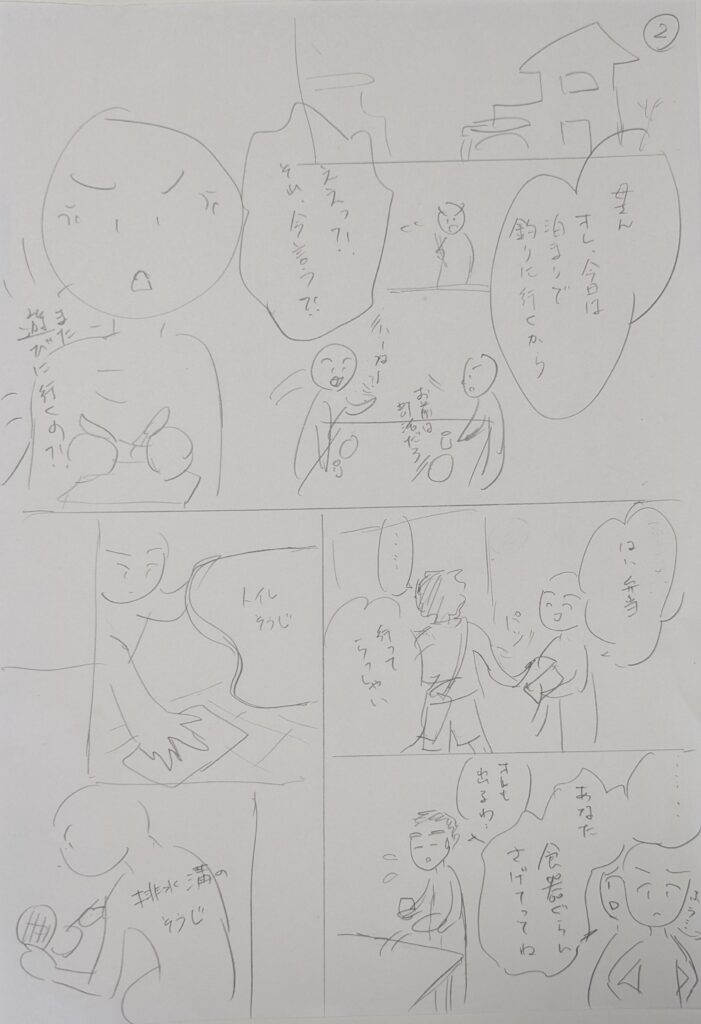 2
母さん
オレ、今日は
泊まりで
釣りに行くから
ええっ?!
それ、今言う?!
また
遊びに行くの?!
いーねー
お前は
部活だろ
はい弁当
パシッ
……
行って
らっしゃい
トイレ
そうじ
……
あなた
食器ぐらい
さげてってね
オレも
出るわ…
排水溝の
そうじ